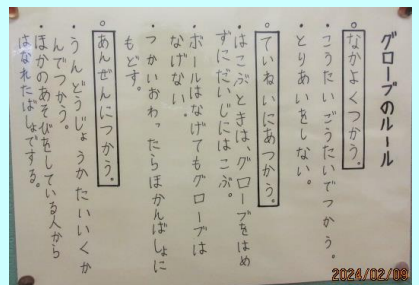 グローブのルール
○なかよくつかう。
・こうたいごうたいでつかう。
・とりあいをしない。
○ていねいにあつかう。
・はこぶときは、グローブをはめ
ずにだいじにはこぶ。
・ボールはなげてもグローブは
なげない。
・つかいおわったらほかんばしょに
もどす。
○あんぜんにつかう。
・うんどうじょうかたいいくか
んでつかう。
・ほかのあそびをしている人から
はなれたばしょでする。
2024/02/09